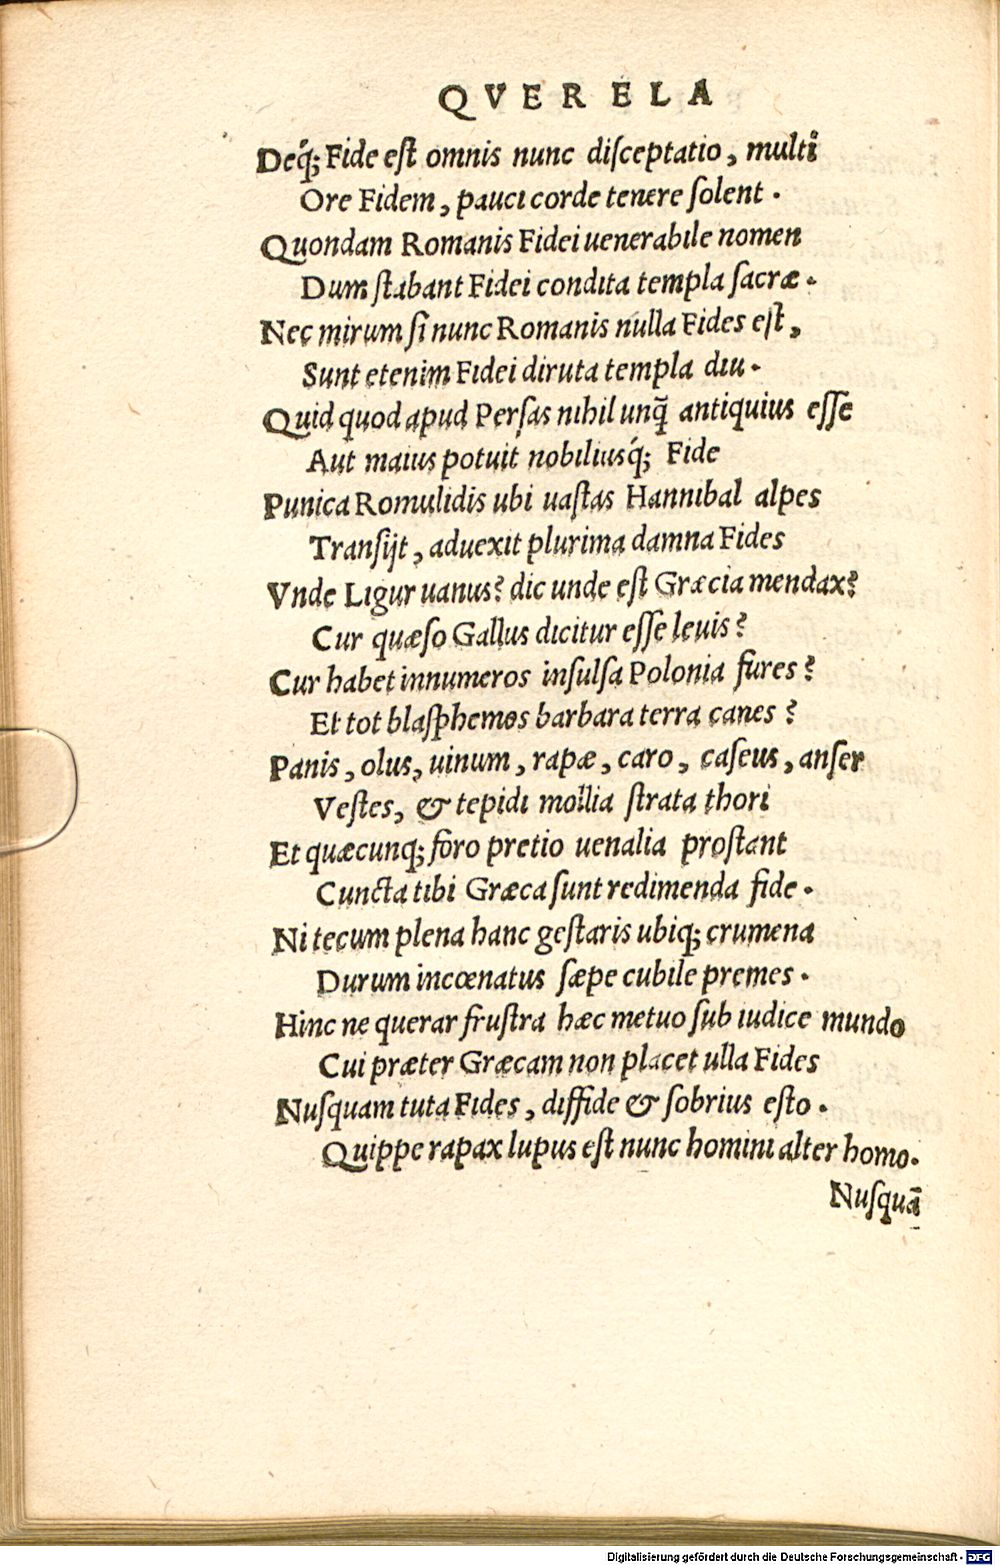 QVERELA
Deq́; Fide eſt omnis nunc diſceptatio, multi
Ore Fidem, pauci corde tenere ſolent.
Quondam Romanis Fidei uenerabile nomen
Dum ſtabant Fidei condita templa ſacræ.
Nec mirum ſi nunc Romanis nulla Fides eſt,
Sunt etenim Fidei diruta templa diu.
Quid quod apud Perſas nihil unq̃ antiquius eſſe
Aut maius potuit nobiliusq́; Fide
Punica Romulidis ubi uaſtas Hannibal alpes
Tranſijt, aduexit plurima damna Fides
Vnde Ligur uanus? dic unde eſt Græcia mendax?
Cur quæſo Gallus dicitur eſſe leuis?
Cur habet innumeros inſulſa Polonia fures?
Et tot blaſphemos barbara terra canes?
Panis, olus, uinum, rapæ, caro, caſeus, anſer
Veſtes, & tepidi mollia ſtrata thori
Et quæcunq; foro pretio uenalia proſtant
Cuncta tibi Græca ſunt redimenda fide.
Ni tecum plena hanc geſtaris ubiq; crumena
Durum incœnatus ſæpe cubile premes.
Hinc ne querar fruſtra hæc metuo ſub iudice mundo
Cui præter Græcam non placet ulla Fides
Nuſquam tuta Fides, diffide & ſobrius eſto.
Quippe rapax lupus eſt nunc homini alter homo.
Nuſquã
Digitalisierung gefördert durch die Deutsche Forschungsgemeinschaft - DFG